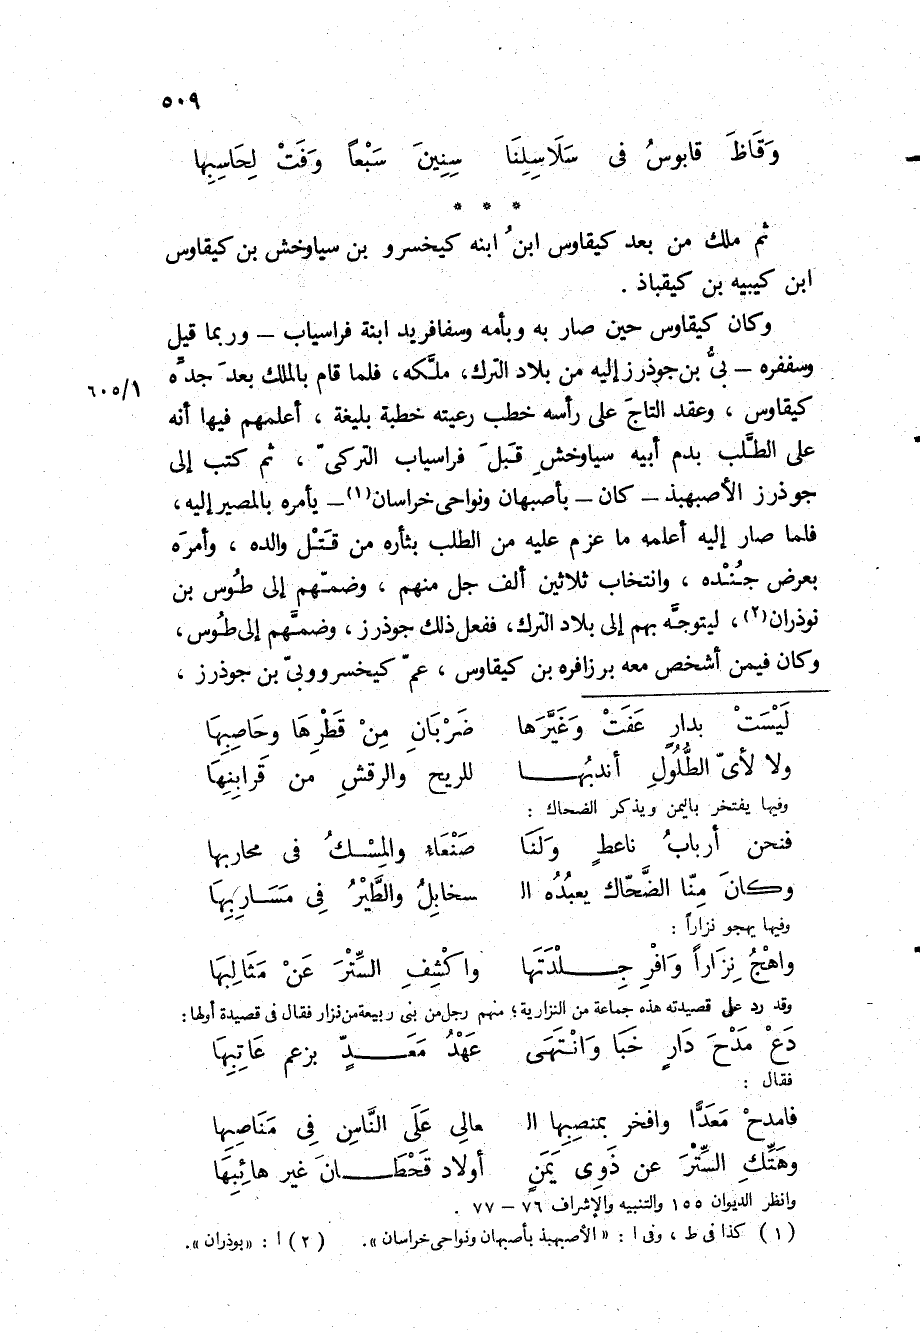 ٥٠٩
وَقَاظَ قابوسُ فى سَلَاسِلِنَا سِنِينَ سَبْعاً وَفَتْ لِحَاسِبِها
* * *
ثم ملك من بعد كيقاوس ابنُ ابنه كيخسرو بن سياوخش بن كيقاوس
ابن كيبيه بن كيقباذ .
وكان كيقاوس حين صار به وبأمه وسفافريد ابنة فراسياب – وربما قيل
وسففره – بىُّ بن جوذرز إليه من بلاد الترك، ملَّكه، فلما قام بالملك بعدَ جدَّه
٦٠٥/١
كيقاوس ، وعقد التاجَ على رأسه خطب رعيته خطبة بليغة ، أعلمهم فيها أنه
على الطَّلب بدم أبيه سياوخشِ قِبَلَ فراسياب التركىّ ، ثم كتب إلى
جوذرز الأصبهبذ – كان – بأصبهان ونواحى خراسان(١) – يأمره بالمصير إليه،
فلما صار إليه أعلمه ما عزم عليه من الطلب بثأره من قَتْل والده ، وأمرَه
بعرض جُنْده ، وانتخاب ثلاثين ألف جل منهم ، وضمّهم إلى طُوس بن
نوذران(٢)، ليتوجَّه بهم إلى بلاد الترك، ففعل ذلك جوذرز، وضمَّهم إلى طُوس،
وكان فيمن أشخص معه برزافره بن كيقاوس ، عمّ كيخسرو وبىّ بن جوذرز ،
لَيْسَتْ بدارٍ عَفَتْ وَغَيَّرَها ضَرْبَانِ مِنْ قَطْرِهَا وحَاصِبِهَا
ولا لأىّ الطُّلُولِ أندبُها للريح والرقشِ من قَرابِنِهَا
وفيها يفتخر باليمن ويذكر الضحاك :
فنحن أربابُ ناعطٍ وَلَنَا صَنْعَاء والمِسْكُ فى محاربها
وكانَ مِنّا الضَّحّاك يعبُدُه الـ سخابِلُ والطَّيْرُ فِى مَسَارِبِهَا
وفيها يهجو نزاراً :
واهْجُ نِزَاراً وَافْرِ جِلْدَتَها واكْشِفِ السِّتْرَ عَنْ مَثَالِبِهَا
وقد رد على قصيدته هذه جماعة من النزارية؛ منهم رجل من بنى ربيعة من نزار فقال فى قصيدة أولها:
دَعْ مَدْحَ دَارٍ خَبَا وَانْتَهَى عَهْدُ مَعَدٍّ بزعم عَاتِبِهَا
فقال :
فامدحْ مَعَدًّا وافخر بمنصِبِها الـ عالِى عَلَى النَّاسِ فِى مَنَاصِبِها
وهَتِّكِ السِّتْرَ عن ذَوِى يَمَنٍ أولاد قَحْطَانَ غير هائِبِهَا
وانظر الديوان ١٥٥ والتنبيه والإشراف ٧٦ – ٧٧ .
(١) كذا فى ط ، وفى ا : « الأصبهبذ بأصبهان ونواحى خراسان ». (٢) ا : «بوذران».